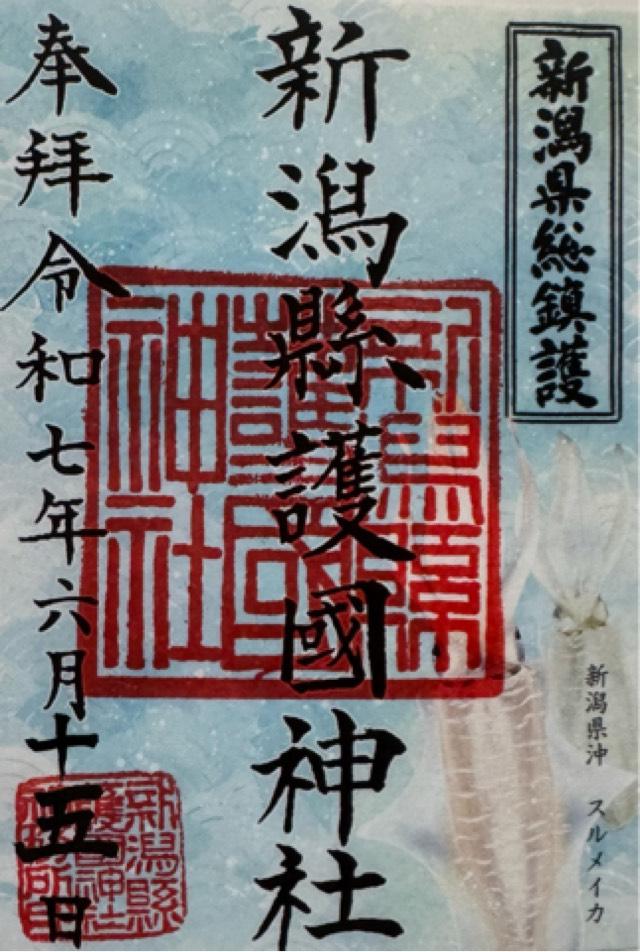 新潟県総鎮護
新潟県沖 スルメイカ
新潟縣護國神社
奉拝 令和七年六月十五日
新潟縣
護國
神社
新潟縣
護國神社